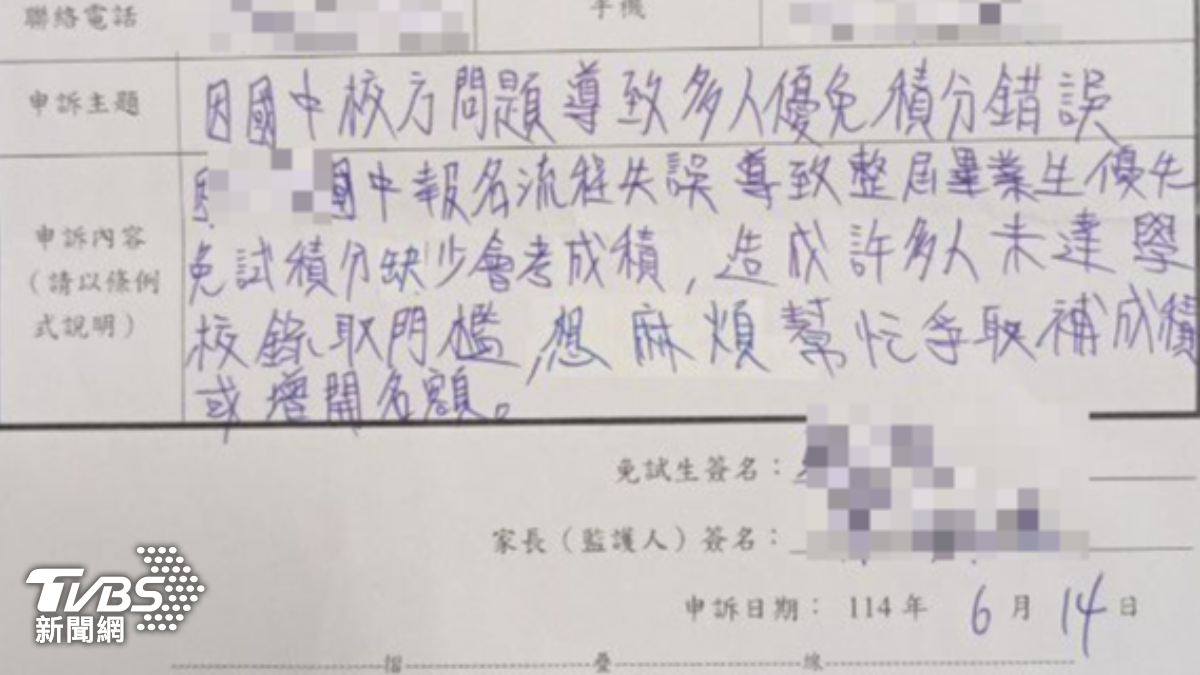 聯絡電話 手機
申訴主題 因國中校方問題導致多人優免積分錯誤
國中報名流程失誤導致整屆畢業生優先
申訴內容 免試積分缺少會考成積,造成許多人未達學
(請以條例 校錄取門檻,想麻煩幫忙爭取補成積
式說明) 或增開名額。
免試生簽名:
家長(監護人)簽名:
申訴日期: 114年 6月 14日
摺 疊 線
TVBS
新聞網